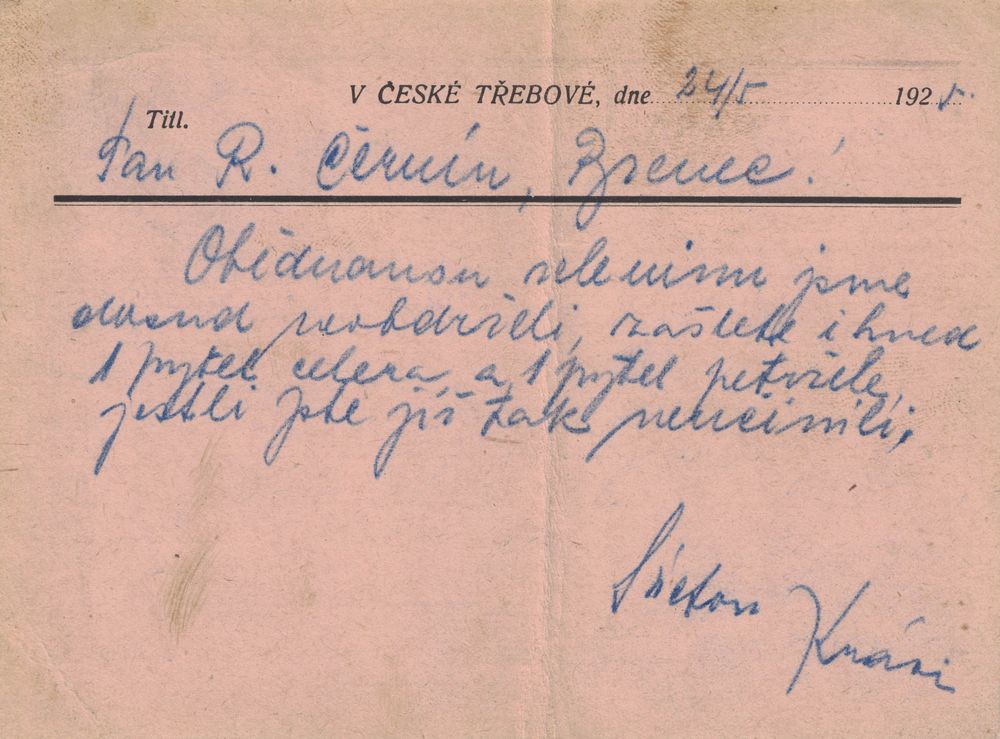 V ČESKÉ TŘEBOVÉ, dne 24/5 1925.
Titl.
Pan R. Černín, Brenec!
Obědnanou zeleninu jsme
dosud neobdrželi, zašlete ihned
1 pytel celera a 1 pytel petržele,
jestli jste již tak neučinili.
S úctou